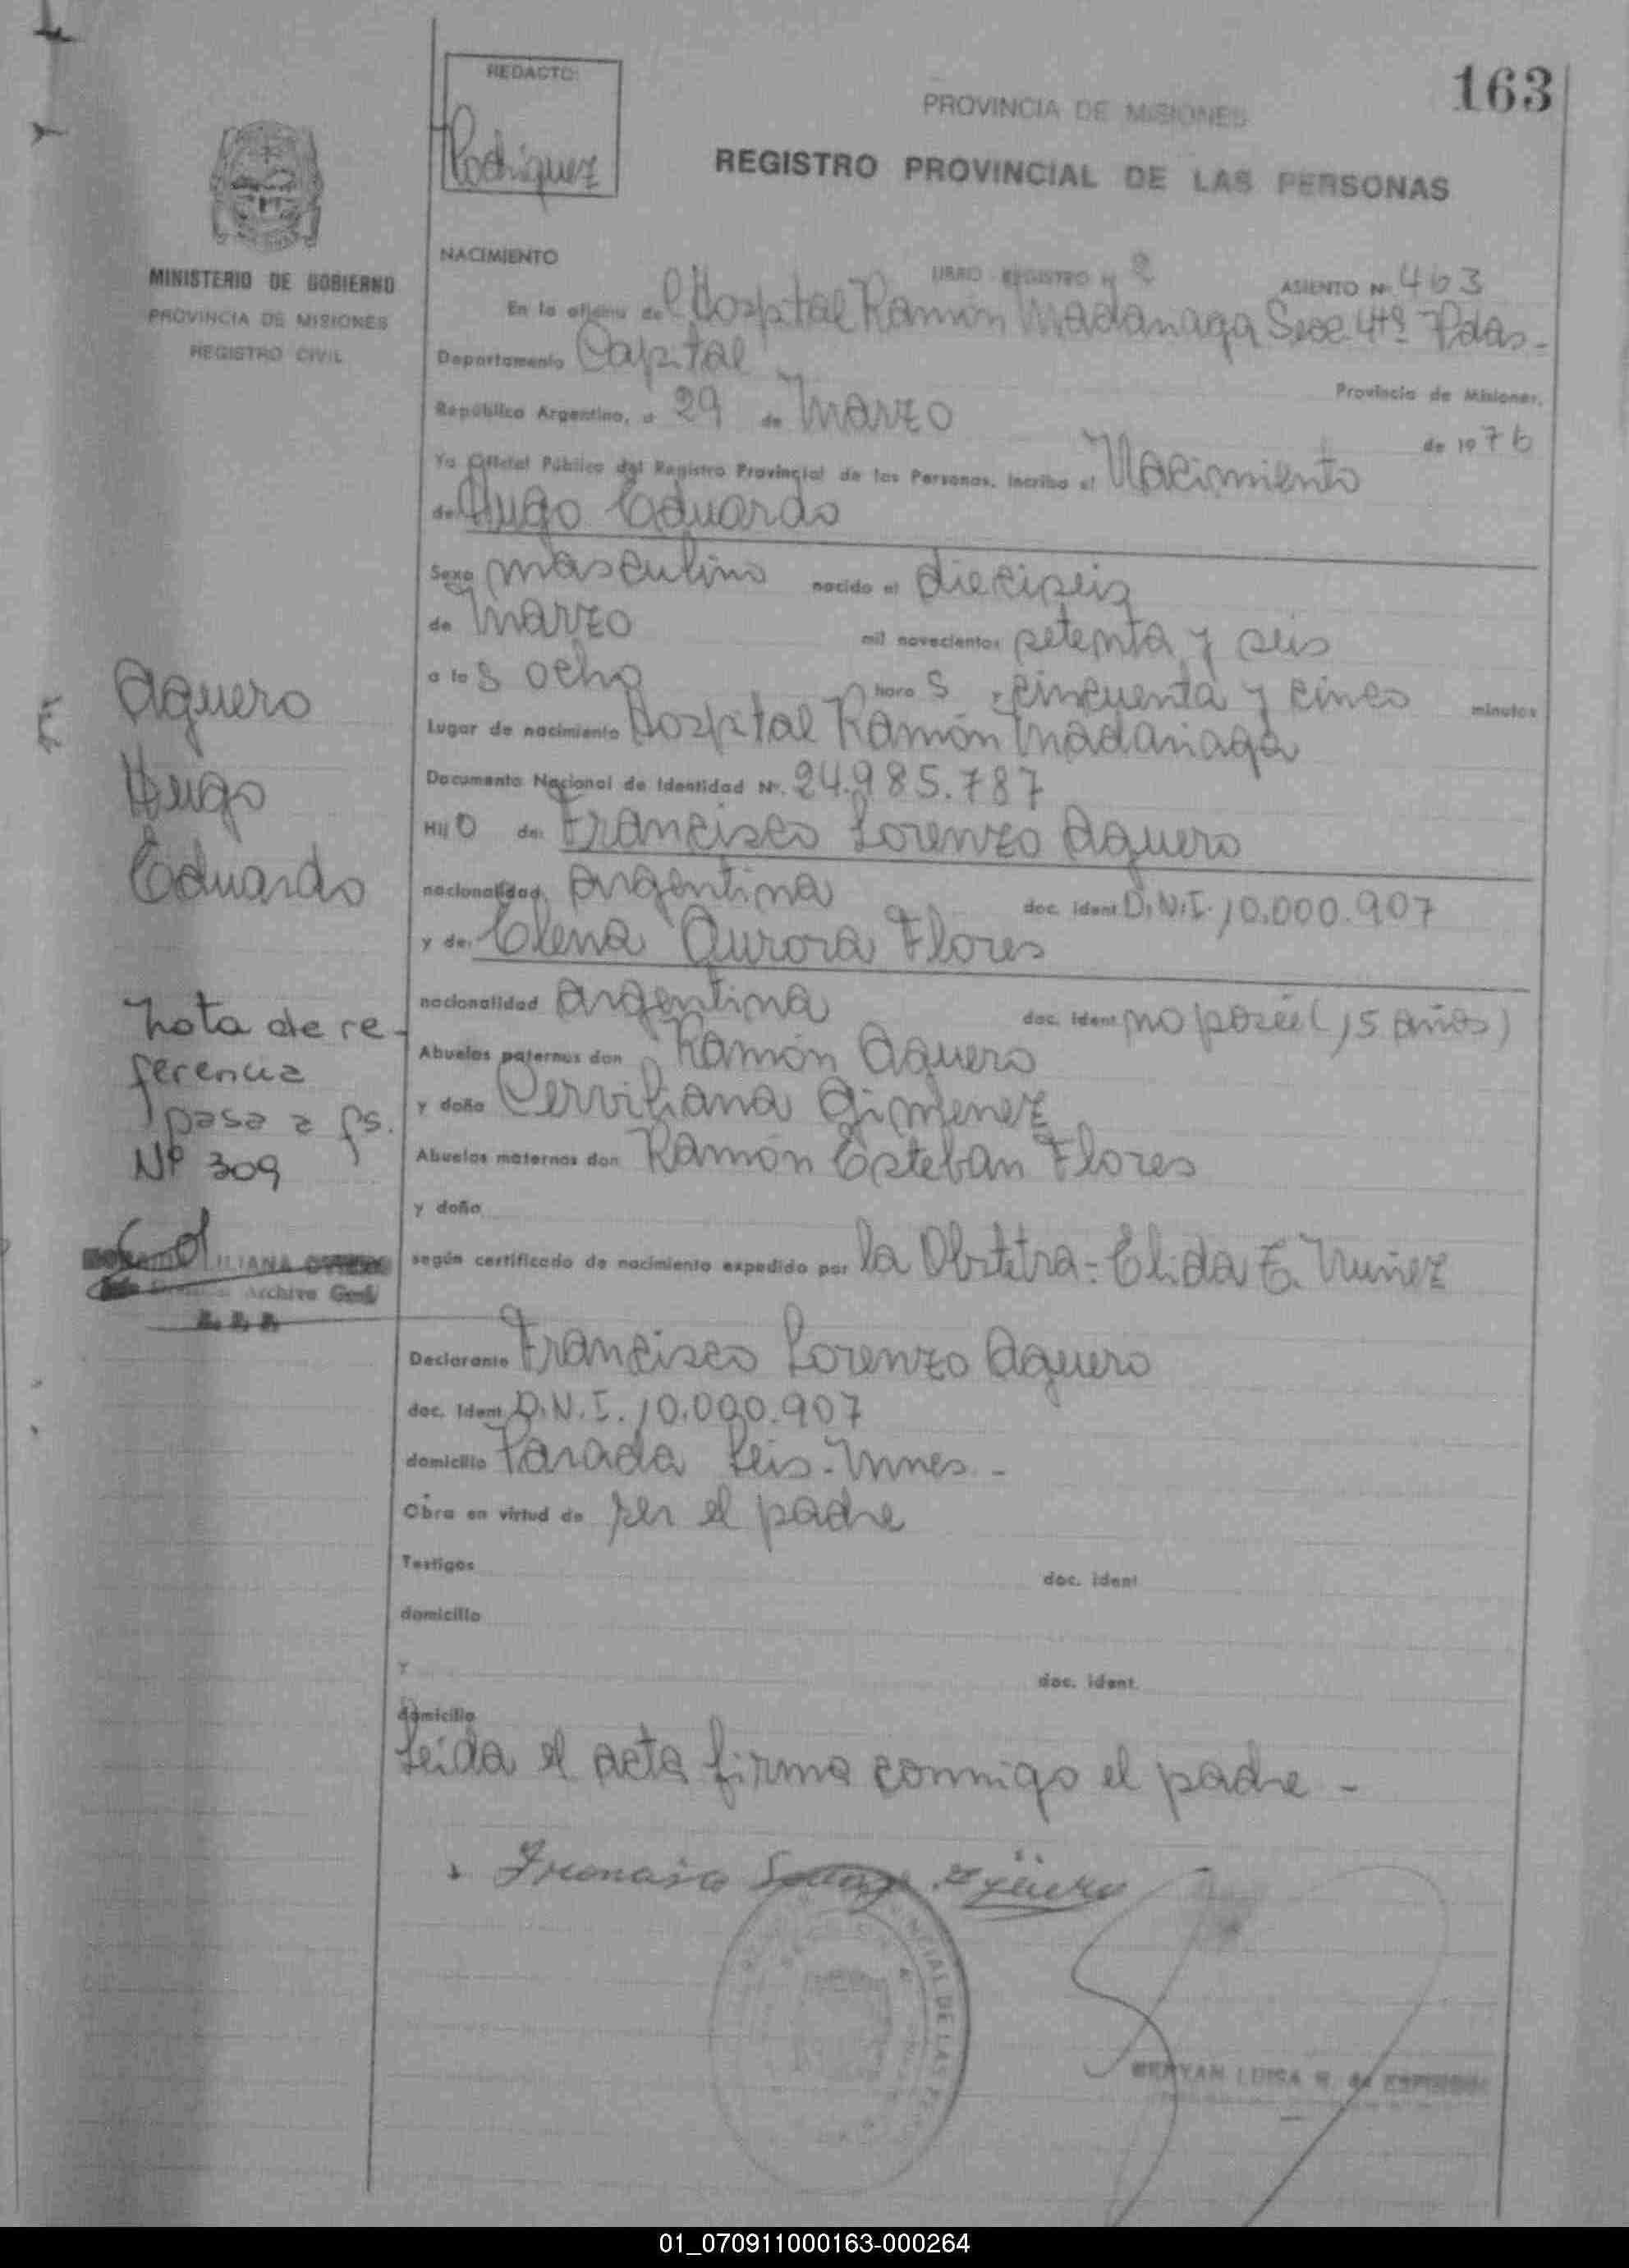 163
REDACTO:
Rodriguez
PROVINCIA DE MISIONES
REGISTRO PROVINCIAL DE LAS PERSONAS
MINISTERIO DE GOBIERNO
PROVINCIA DE MISIONES
REGISTRO CIVIL
NACIMIENTO
LIBRO REGISTRO Nº 2 ASIENTO Nº 463
En la oficina del Hospital Ramón Madariaga Secc 4tª Pdas-
Departamento Capital
Provincia de Misiones,
República Argentina, a 29 de Marzo
de 1976
Yo Oficial Público del Registro Provincial de las Personas, inscribo el Nacimiento
de Hugo Eduardo
Sexo masculino nacido el dieciseis
de Marzo mil novecientos setenta y seis
a las ocho horas cincuenta y cinco minutos
Lugar de nacimiento Hospital Ramón Madariaga
Documento Nacional de Identidad Nº. 24.985.787
Hijo de Francisco Lorenzo Aguero
nacionalidad argentina doc. ident D.N.I. 10.000.907
y de Elena Aurora Flores
nacionalidad argentina doc. ident no poseé (15 años)
Abuelos paternos don Ramón Aguero
y doña Cerviliana Gimenez
Abuelos maternos don Ramón Esteban Flores
y doña
según certificado de nacimiento expedido por la Obstetra-Elida E. Nuñez
Declarante Francisco Lorenzo Aguero
doc. Ident D.N.I. 10.000.907
domicilio Parada Leis-Mnes-
Obra en virtud de ser el padre
Testigos doc. ident
domicilio
Y doc. ident.
domicilio
Leida el acta firma conmigo el padre -
Francisco Aguero
LUISA
Aguero
Hugo
Eduardo
Nota de re-
ferencia
pasa a fs.
Nº 309
LILIANA
Archivo Gral
01_070911000163-000264